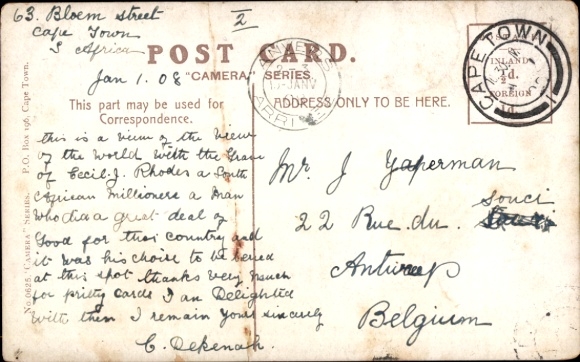 63. Bloem street
Cape Town
S Africa
2
POST CARD.
Jan 1. 08
"CAMERA" SERIES.
This part may be used for
Correspondence.
ADDRESS ONLY TO BE HERE.
this is a view of the View
of the World with the Grave
of Cecil. J. Rhodes a South
African Millionere a Man
who did a great deal of
Good for this Country and
it was his choise to be bered
at this spot thanks very much
for pritty cards I am Delighted
With them I remain Yours sincerly
C. Dekenah.
Mr. J Yaperman
22 Rue. du. Souci
Antwerp
Belgium
No 0625. "CAMERA" SERIES. P.O. Box 196, Cape Town.
ANVERS
JANV
ARRI
CAPE TOWN
INLAND
½d.
FOREIGN